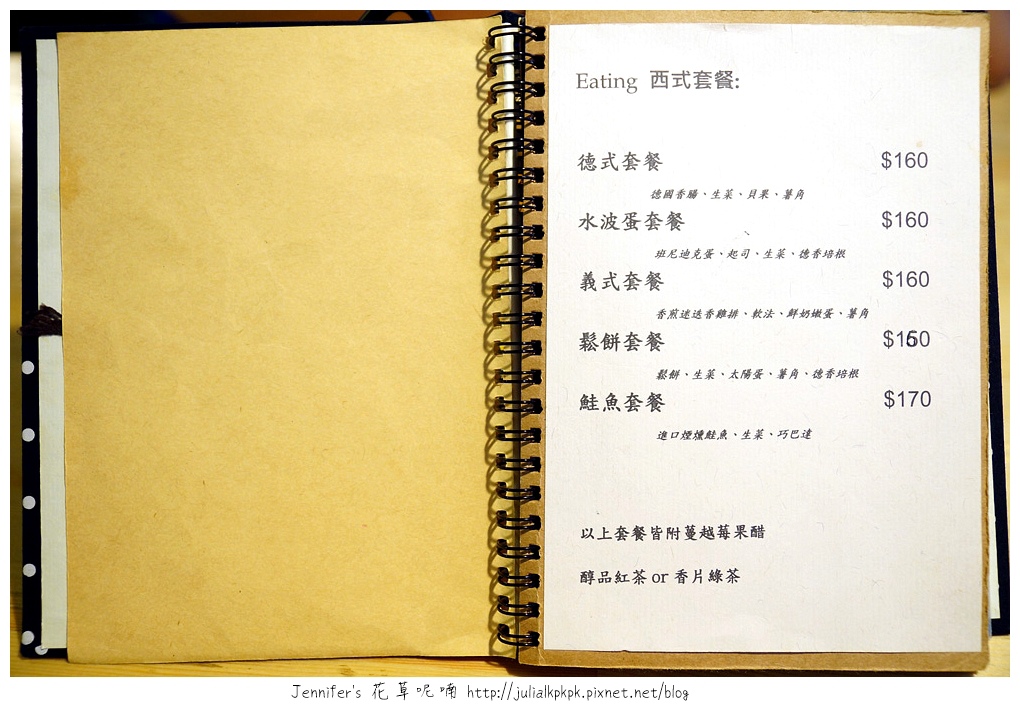 Eating 西式套餐:
德式套餐 $160
德國香腸、生菜、貝果、薯角
水波蛋套餐 $160
班尼迪克蛋、起司、生菜、德香培根
義式套餐 $160
香煎迷迭香雞排、軟法、鮮奶嫩蛋、薯角
鬆餅套餐 $160
鬆餅、生菜、太陽蛋、薯角、德香培根
鮭魚套餐 $170
進口煙燻鮭魚、生菜、巧巴達
以上套餐皆附蔓越莓果醋
醇品紅茶 or 香片綠茶
Jennifer's 花草呢喃 http://julialkpkpk.pixnet.net/blog